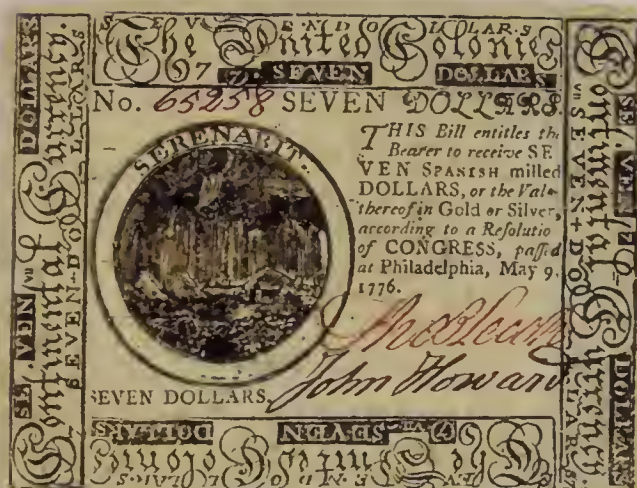 SEVEN DOLLARS
The United Colonies
7 (7). SEVEN DOLLARS
No. 65258 SEVEN DOLLARS.
THIS Bill entitles the
Bearer to receive SE
VEN SPANISH milled
DOLLARS, or the Value
thereof in Gold or Silver,
according to a Reſolutio
of CONGRESS, paſſed
at Philadelphia, May 9.
1776.
SERENABIT.
John Howard
SEVEN DOLLARS.
DOLLARS SE VEN
Continental Currency.
SEVEN DOLLARS
Continental Currency.
SEVEN DOLLARS
SE VEN DOLLARS
SEVEN DOLLARS
The United Colonies
SEVEN DOLLARS